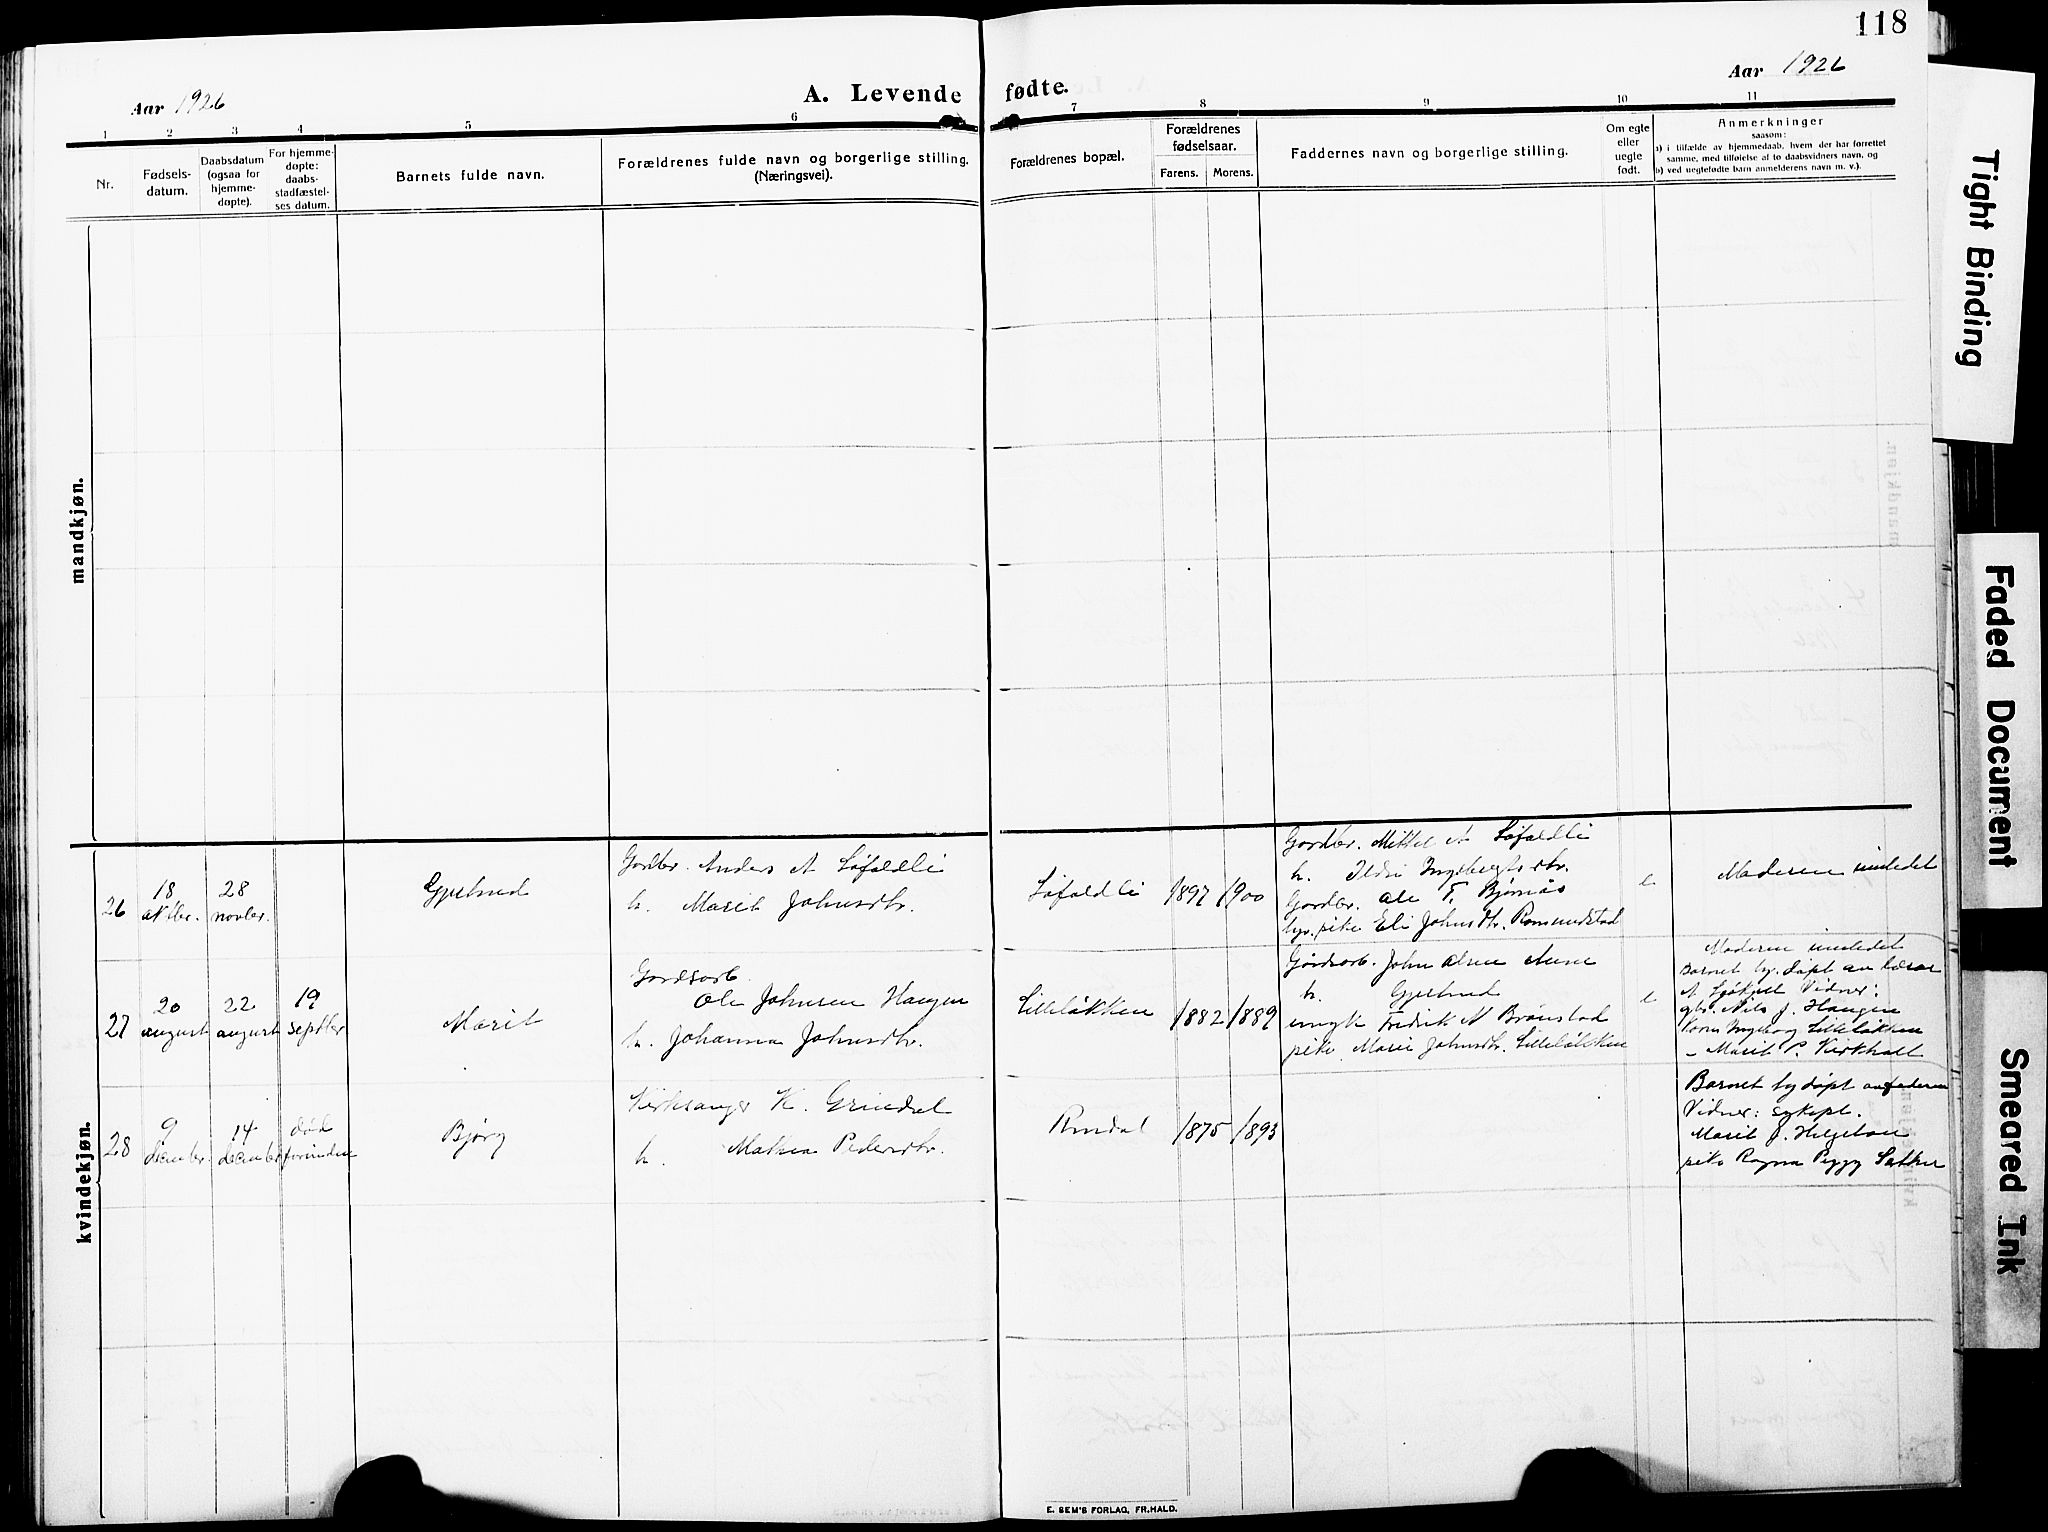 118
Aar 1926
A. Levende fødte.
Aar 1926
1 2 3 4 5 6 7 8 9 10 11
Nr.
Fødsels-
datum.
Daabsdatum
(ogsaa for
hjemme-
døpte).
For hjemme-
døpte:
daabs-
stadfæstel-
ses datum.
Barnets fulde navn.
Forældrenes fulde navn og borgerlige stilling.
(Næringsvei).
Forældrenes bopæl.
Forældrenes
fødselsaar.
Farens. Morens.
Faddernes navn og borgerlige stilling.
Om egte
eller
uegte
født.
Anmerkninger
saasom:
a) i tilfælde av hjemmedaab, hvem der har forrettet
samme, med tilføielse af to daabsvidners navn, og
b) ved uegtefødte barn anmelderens navn m. v.).
mandkjøn.
kvindekjøn.
26
18
oktbr.
28
novbr.
Gjertrud
Gardbr. Anders A Løfaldli
h. Marit Johnsdtr.
Løfaldli
1897 1900
Gardbr. Mikkel A Løfaldli
h. Ildri Ingebrigtsdtr.
Gardbr. Ole T. Bjørnås
pike Eli Johnsdtr. Romundstad
e
Moderen innledet
27
20
august
22
august
19
septbr
Marit
Gardsarb.
Ole Johnsen Haugen
h. Johanna Johnsdtr.
Lilleløkken
1882 1889
Gårdsarb. John Olsen Aune
h. Gjertrud
ungk Fredrik A Brønstad
pike Marie Johnsdtr. Lilleløkken
e
Moderen innledet
Barnet hj. døpt av lærer
Vidner:
gbr. Nils J. Haugen
Kone Ingeborg Lilleløkken
- Marit P.
28
9
december
14
december
død
forinden
Bjørg
Kirksanger K. Grindal
h. Mathea Pedersdtr.
Rindal
1875 1893
Barnet hj døpt av faderen
Vidner: sykepl.
Marit J. Helgetun
pike Ragna Peggy Sæther
E. SEM'S FORLAG, FR.HALD.
Tight Binding
Faded Document
Smeared Ink